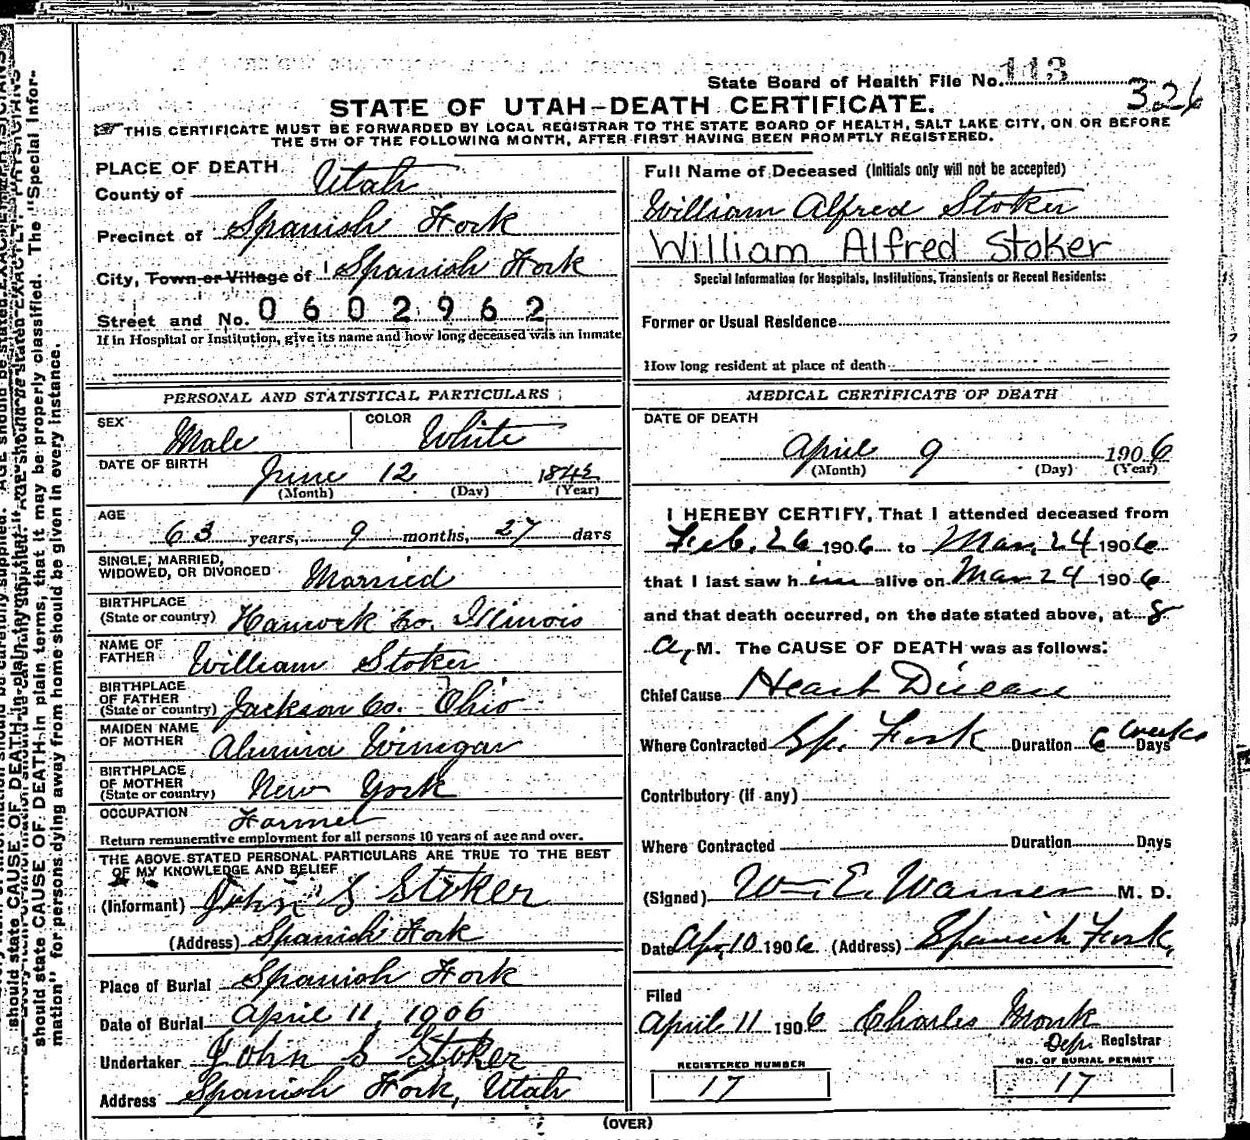 State Board of Health File No. 113
326
STATE OF UTAH—DEATH CERTIFICATE.
THIS CERTIFICATE MUST BE FORWARDED BY LOCAL REGISTRAR TO THE STATE BOARD OF HEALTH, SALT LAKE CITY, ON OR BEFORE
THE 5TH OF THE FOLLOWING MONTH, AFTER FIRST HAVING BEEN PROMPTLY REGISTERED.
PLACE OF DEATH
County of Utah
Precinct of Spanish Fork
City, Town or Village of Spanish Fork
Street and No. 0602962
If in Hospital or Institution, give its name and how long deceased was an inmate
PERSONAL AND STATISTICAL PARTICULARS
SEX Male COLOR White
DATE OF BIRTH June 12 1842
(Month) (Day) (Year)
AGE
63 years, 9 months, 27 days
SINGLE, MARRIED,
WIDOWED, OR DIVORCED Married
BIRTHPLACE
(State or country) Hancock Co. Illinois
NAME OF
FATHER William Stoker
BIRTHPLACE
OF FATHER
(State or country) Jackson Co. Ohio
MAIDEN NAME
OF MOTHER Almira Winegar
BIRTHPLACE
OF MOTHER
(State or country) New York
OCCUPATION Farmer
Return remunerative employment for all persons 10 years of age and over.
THE ABOVE STATED PERSONAL PARTICULARS ARE TRUE TO THE BEST
OF MY KNOWLEDGE AND BELIEF
(Informant) John S Stoker
(Address) Spanish Fork
Place of Burial Spanish Fork
Date of Burial April 11, 1906
Undertaker John S Stoker
Address Spanish Fork, Utah
Full Name of Deceased (Initials only will not be accepted)
William Alfred Stoker
William Alfred Stoker
Special Information for Hospitals, Institutions, Transients or Recent Residents:
Former or Usual Residence
How long resident at place of death
MEDICAL CERTIFICATE OF DEATH
DATE OF DEATH
April 9 1906
(Month) (Day) (Year)
I HEREBY CERTIFY, That I attended deceased from
Feb. 26 1906 to Mar. 24 1906
that I last saw him alive on Mar 24 1906
and that death occurred, on the date stated above, at 8
A, M. The CAUSE OF DEATH was as follows:
Chief Cause Heart Disease
Where Contracted Sp. Fork Duration 6 weeks Days
Contributory (if any)
Where Contracted Duration Days
(Signed) Wm E. Warner M. D.
Date Apr, 10 1906 (Address) Spanish Fork,
Filed
April 11 1906 Charles Monk
Dep. Registrar
REGISTERED NUMBER
17
NO. OF BURIAL PERMIT
17
(OVER)
should state CAUSE OF DEATH in plain terms, that it may be properly classified. The "Special Infor-
mation" for persons dying away from home should be given in every instance.